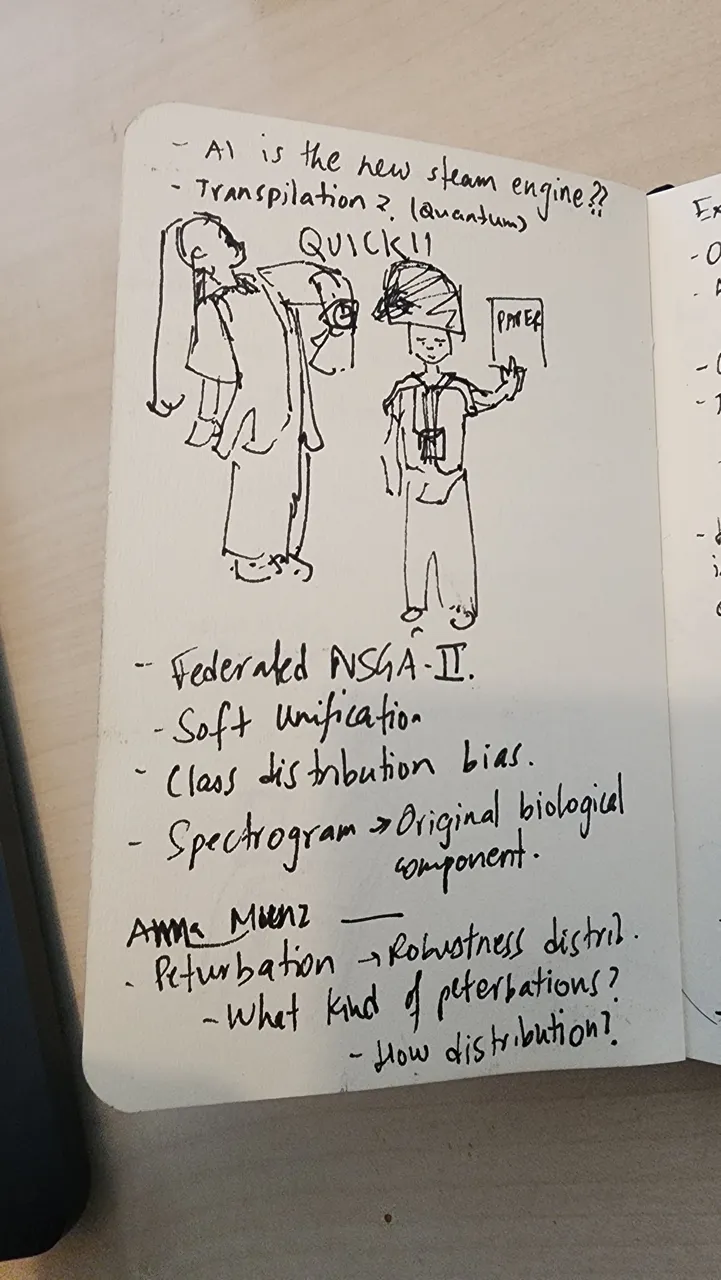 - AI is the new steam engine??
- Transpilation?. (Quantum)
QUICK!!
PAPER
- Federated NSGA-II.
- Soft Unification
- Class distribution bias.
- Spectrogram → Original biological
component.
Anna Muenz —
- Peturbation → Robustness distrib.
- What kind of peterbations?
- How distribution?
Ex